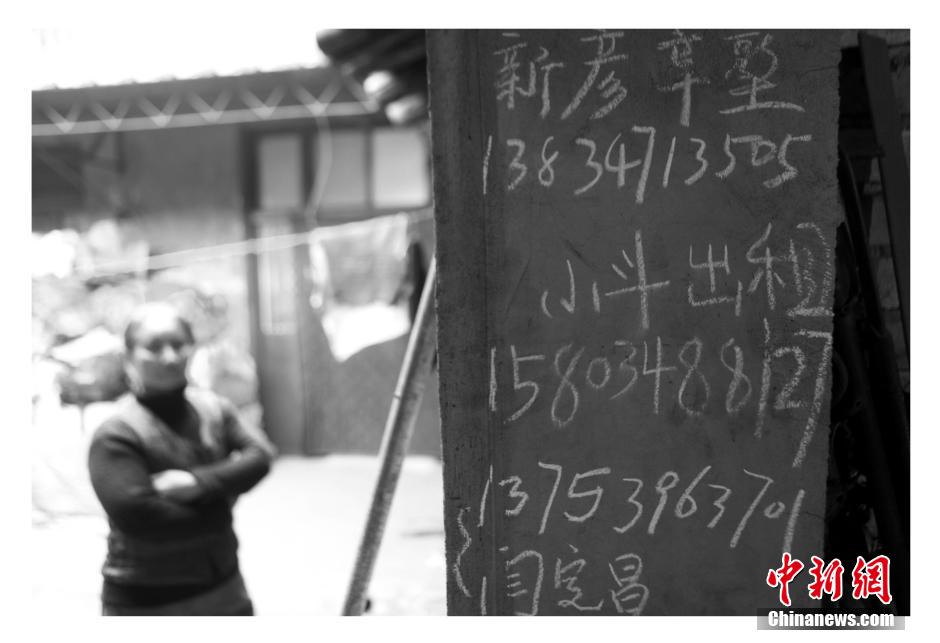 新彦章堅
13834713505
小斗出租
15803488127
13753963701
闫定昌
中新网
Chinanews.com